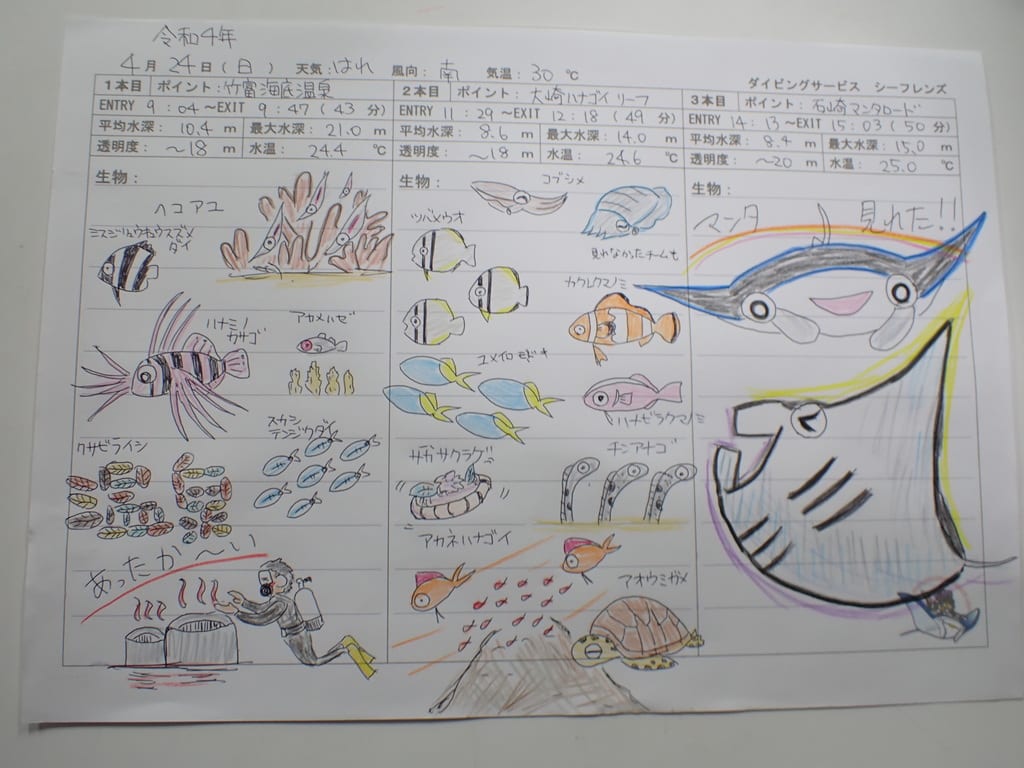 令和4年
4月24日(日) 天気:はれ 風向:南 気温:30℃
ダイビングサービス シーフレンズ
1本目 ポイント:竹富海底温泉
ENTRY 9:04～EXIT 9:47(43分)
平均水深: 10.4 m 最大水深: 21.0 m
透明度: ～18 m 水温: 24.4 ℃
生物:
ヘコアユ
ミスジリュウキュウスズメ
ダイ
ハナミノ
カサゴ
アカメハゼ
クサビライシ
スカシ
テンジクダイ
あったか～い
2本目 ポイント:大崎ハナゴイリーフ
ENTRY 11:29～EXIT 12:18(49分)
平均水深: 8.6 m 最大水深: 14.0 m
透明度: ～18 m 水温: 24.6 ℃
生物:
コブシメ
ツバメウオ
見れなかったチームも
カクレクマノミ
ユメイロモドキ
ハナビラクマノミ
サカサクラゲ
チンアナゴ
アカネハナゴイ
アオウミガメ
3本目 ポイント:石崎マンタロード
ENTRY 14:13～EXIT 15:03(50分)
平均水深: 8.4 m 最大水深: 15.0 m
透明度: ～20 m 水温: 25.0 ℃
生物:
マンタ 見れた!!